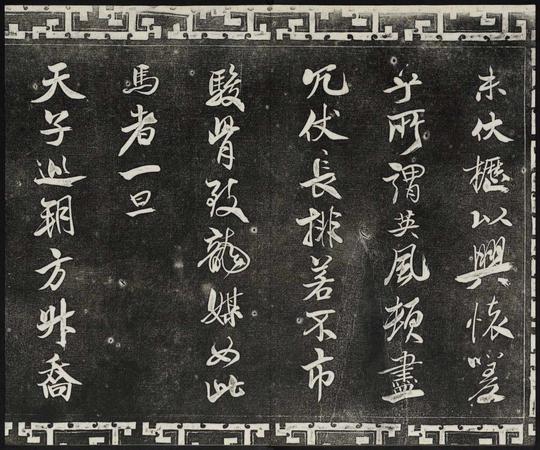 未伏櫪以興懷嗟
乎所謂英風頓盡
冗仗長排若不市
駿骨致龍媒如此
馬者一旦
天子巡朔方升喬